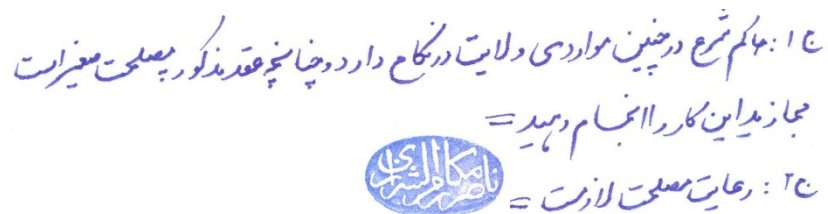 ج ۱: حاکم شرع در چنین مواردی ولایت در نکاح دارد و چنانچه عقد مذکور بمصلحت صغیر است
مجازید این کار را انجام دهید =
ج ۲: رعایت مصلحت لازمست =
ناصر مکارم الشیرازی